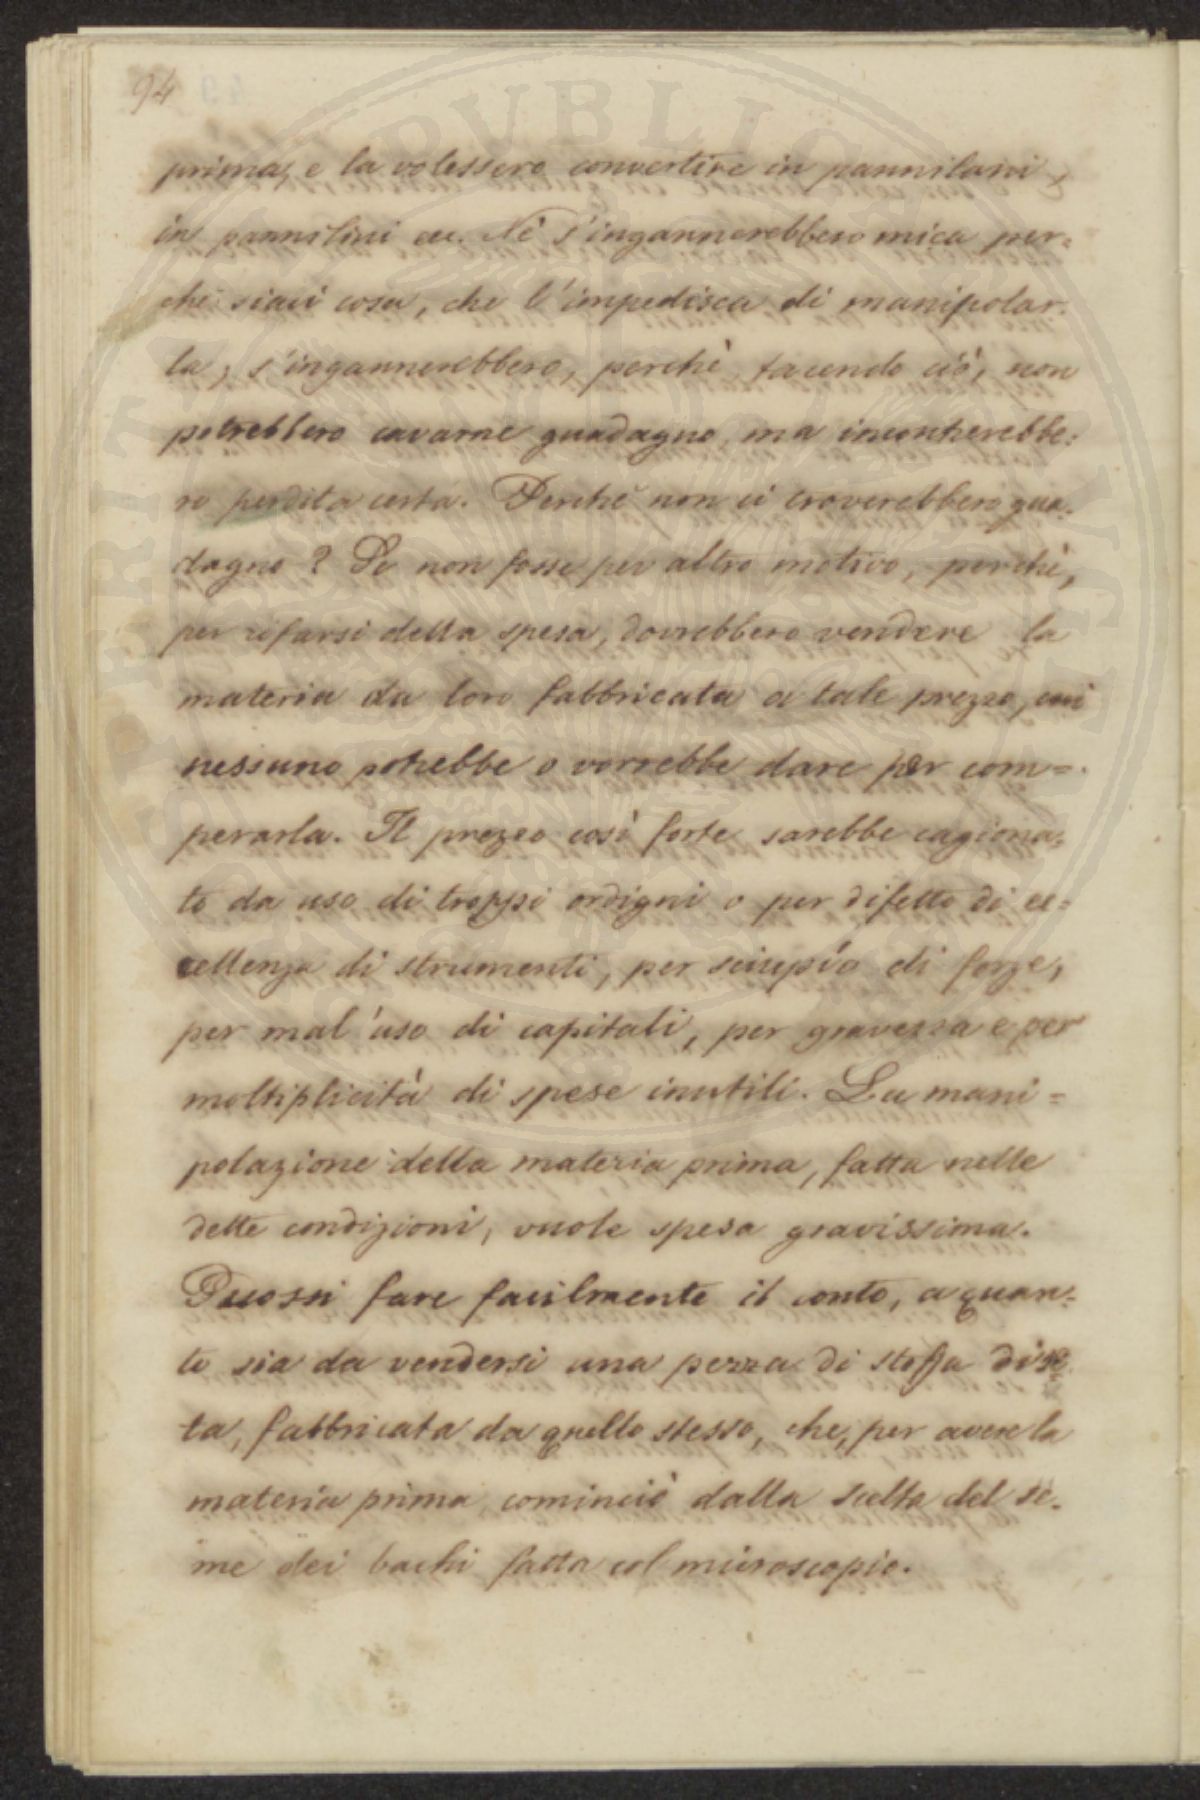 94
prima, e la volessero convertire in pannilani,
in pannilini ecc. Nè s'ingannerebbero mica per=
chè siavi cosa, che l'impedisca di manipolar=
la, s'ingannerebbero, perchè, facendo ciò, non
potrebbero cavarne guadagno, ma incontrerebbe=
ro perdita certa. Perchè non ci troverebbero gua=
dagno? Se non fosse per altro motivo, perchè,
per rifarsi della spesa, dovrebbero vendere la
materia da loro fabbricata a tale prezzo, cui
nessuno potrebbe o vorrebbe dare per com=
perarla. Il prezzo così forte sarebbe cagiona=
to da uso di troppi ordigni o per difetto di ec=
cellenza di strumenti, per sciupío di forze,
per mal'uso di capitali, per gravezza e per
moltiplicità di spese inutili. La mani=
polazione della materia prima, fatta nelle
dette condizioni, vuole spesa gravissima.
Puossi fare facilmente il conto, a quan=
to sia da vendersi una pezza di stoffa di se=
ta, fabbricata da quello stesso, che, per avere la
materia prima, cominciò dalla scelta del se=
me dei bachi fatta col microscopio.
SPERITAT PUBLICA CIVICA